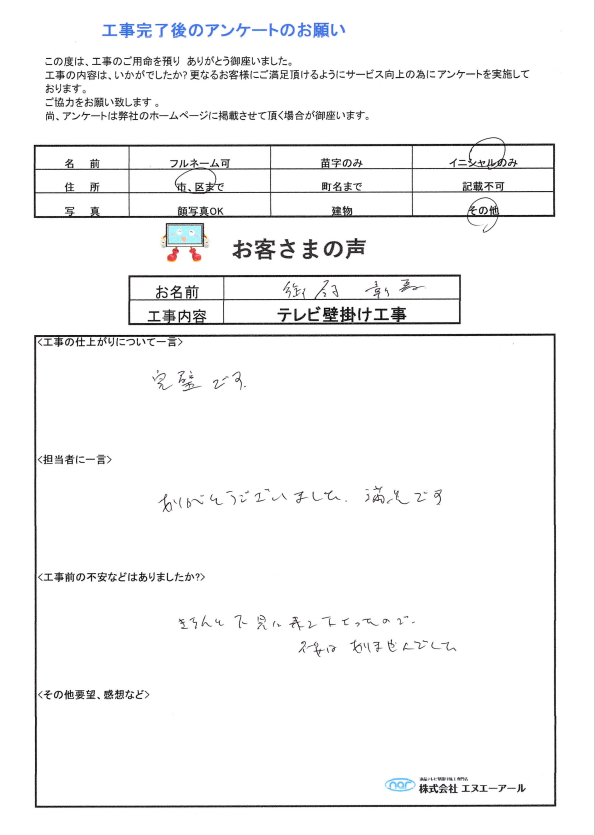 工事完了後のアンケートのお願い
この度は、工事のご用命を預り ありがとう御座いました。
工事の内容は、いかがでしたか?更なるお客様にご満足頂けるようにサービス向上の為にアンケートを実施して
おります。
ご協力をお願い致します 。
尚、アンケートは弊社のホームページに掲載させて頂く場合が御座います。
名 前 フルネーム可 苗字のみ イニシャルのみ
住 所 市、区まで 町名まで 記載不可
写 真 顔写真OK 建物 その他
お客さまの声
お名前
工事内容 テレビ壁掛け工事
<工事の仕上がりについて一言>
完璧です.
<担当者に一言>
ありがとうございました. 満足です
<工事前の不安などはありましたか?>
きちんと下見に来て下さったので.
不安は ありませんでした
<その他要望、感想など>
nar
株式会社 エヌエーアール